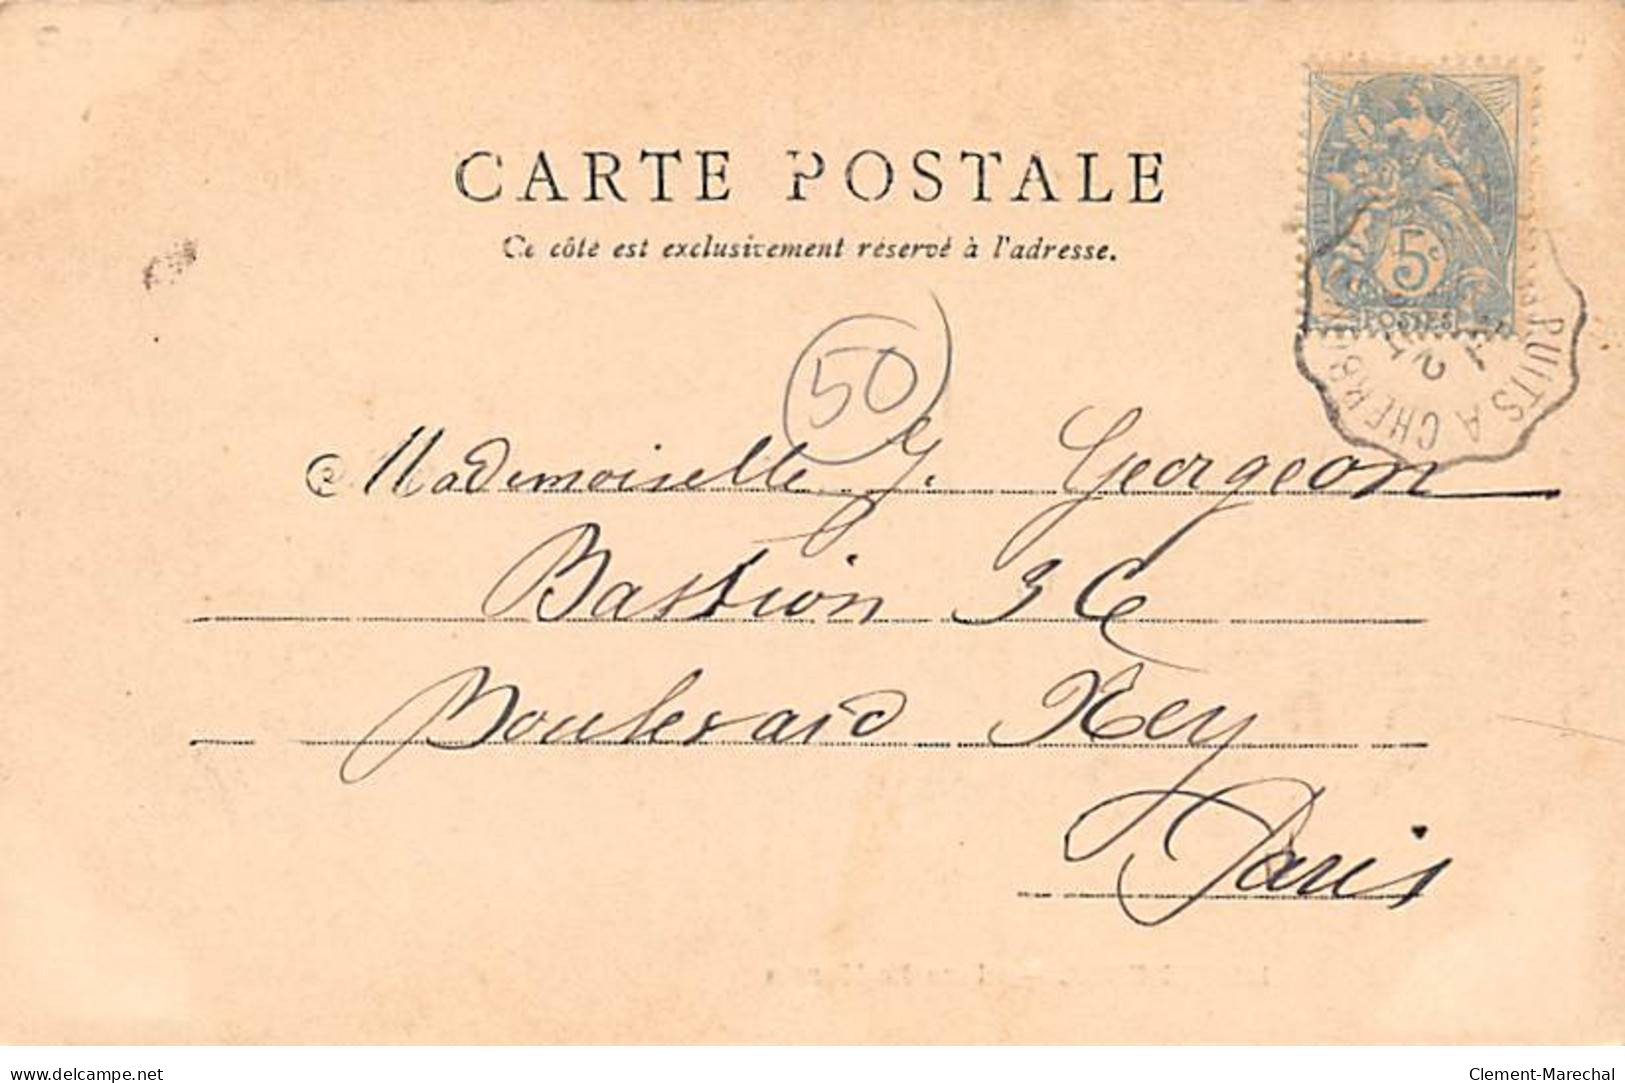 CARTE POSTALE
Ce côté est exclusivement réservé à l'adresse.
5c
POSTES
RUITS A CHERB
50
Mademoiselle J. Georgeon
Bastion 36
Boulevard Ney
Paris
delcampe.net
Clement-Marechal